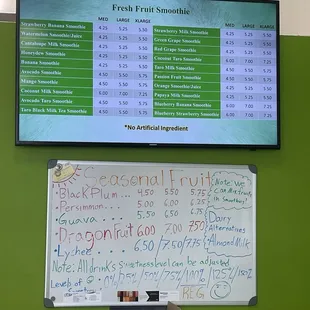 Fresh Fruit Smoothie
MED LARGE XLARGE
Strawberry Banana Smoothie 4.25 5.25 5.50
Watermelon Smoothie/Juice 4.25 5.25 5.50
Cantalope Milk Smoothie 4.25 5.25 5.50
Honeydew Smoothie 4.25 5.25 5.50
Banana Smoothie 4.25 5.25 5.50
Avocado Smoothie 4.50 5.50 5.75
Mango Smoothie 4.50 5.50 5.75
Coconut Milk Smoothie 6.00 7.00 7.25
Avocado Taro Smoothie 4.50 5.50 5.75
Taro Black Milk Tea Smoothie 4.50 5.50 5.75
MED LARGE XLARGE
Strawberry Milk Smoothie 4.25 5.25 5.50
Green Grape Smoothie 4.25 5.25 5.50
Red Grape Smoothie 4.25 5.25 5.50
Coconut Taro Smoothie 6.00 7.00 7.25
Taro Milk Smoothie 4.25 5.25 5.50
Passion Fruit Smoothie 4.50 5.50 5.75
Orange Smoothie Juice 4.25 5.25 5.50
Papaya Milk Smoothie 4.25 5.25 5.50
Blueberry Banana Smoothie 6.00 7.00
Blueberry Strawberry Smoothie 6.00 7.00
*No Artificial Ingredient
Seasonal Fruit
• Black Plum... 4.50 5.50 5.75
• Persimmon... 5.00 6.00 6.25
• Guava... 5.50 6.50 6.75
• Dragon fruit 6.00 7.00 7.50
• Lychee... 6.50/7.50/7.75
Note: We
can
in
Smoothies!
Dairy
Alternatives
Almond Milk
Note: All drink's Sweetness level can be adjusted
Levels of
0% 25% 50% 75% 100% 125% 150%
REG